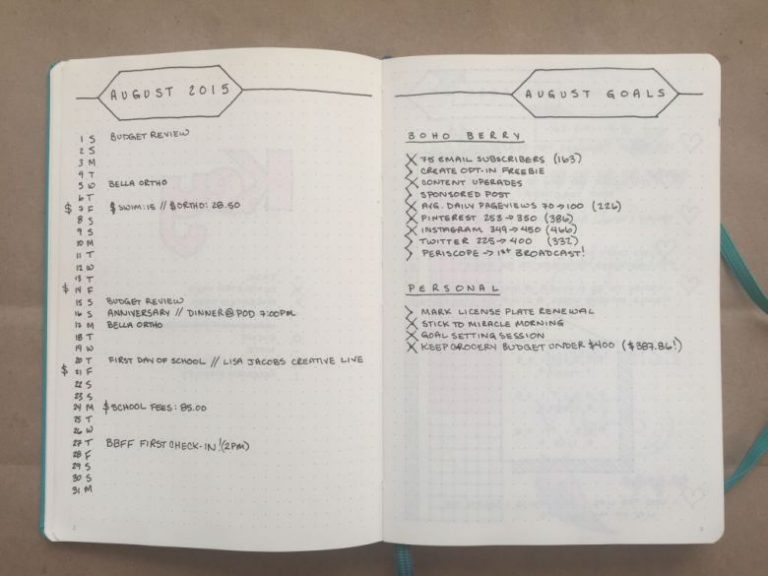 AUGUST 2015
1 S BUDGET REVIEW
2 S
3 M
4 T
5 W BELLA ORTHO
6 T
$ 7 F $ SWIM: 15 // $ ORTHO: 28.50
8 S
9 S
10 M
11 T
12 W
13 T
$ 14 F
15 S BUDGET REVIEW
16 S ANNIVERSARY // DINNER@POD 7:00PM
17 M BELLA ORTHO
18 T
19 W
20 T FIRST DAY OF SCHOOL // LISA JACOBS CREATIVE LIVE
$ 21 F
22 S
23 S
24 M $ SCHOOL FEES: 85.00
25 T
26 W
27 T BBFF FIRST CHECK-IN! (2PM)
28 F
29 S
30 S
31 M
AUGUST GOALS
BOHO BERRY
X 75 EMAIL SUBSCRIBERS (163)
> CREATE OPT-IN FREEBIE
X CONTENT UPGRADES
> SPONSORED POST
X AVG. DAILY PAGEVIEWS 70→100 (226)
X PINTEREST 253→350 (386)
X INSTAGRAM 349→450 (466)
> TWITTER 225→400 (332)
> PERISCOPE → 1ST BROADCAST!
PERSONAL
> MARK LICENSE PLATE RENEWAL
X STICK TO MIRACLE MORNING
X GOAL SETTING SESSION
X KEEP GROCERY BUDGET UNDER $400 ($387.86!)